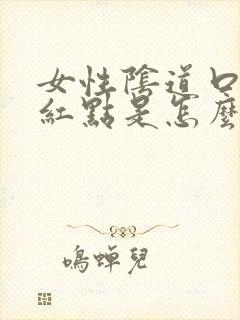 女性陰道口
紅點是怎麼
鳴蝉兒